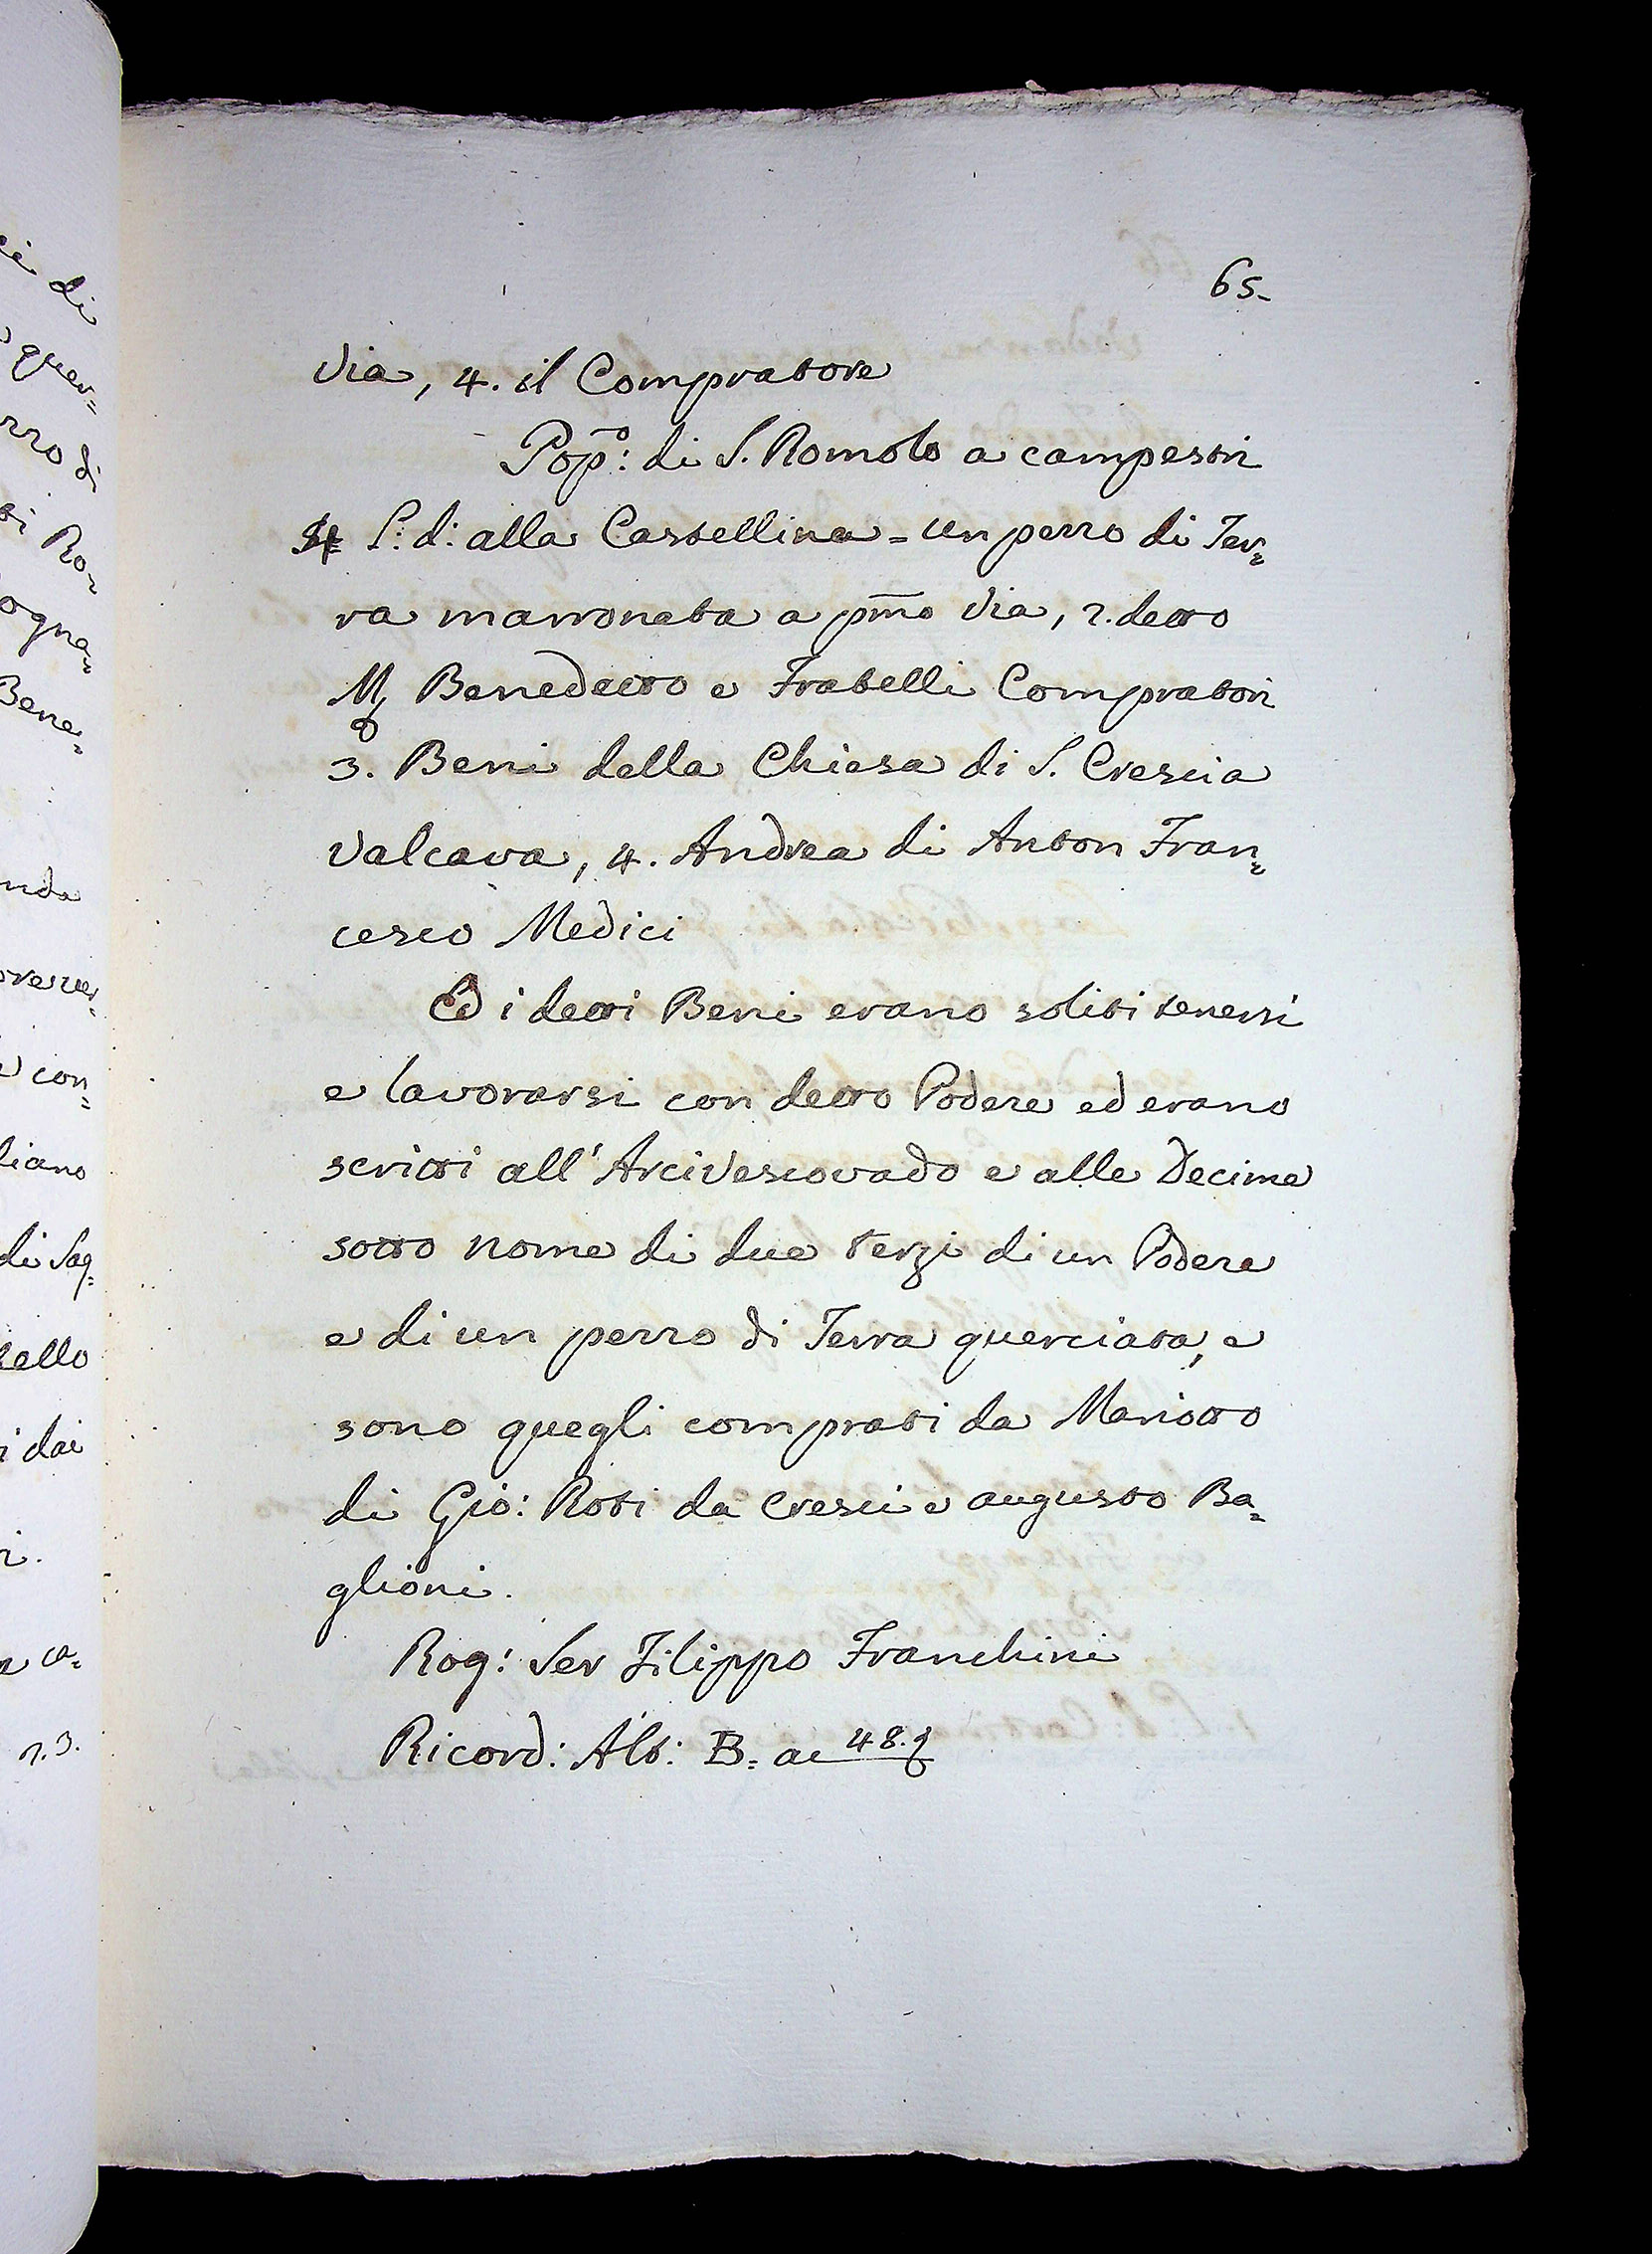 65.
Via, 4. il Compratore
Pop:º di S. Romolo a campestri
L: d: alla Castellina = un pezzo di Ter=
ra marronata a pmo Via, 2. detto
M Benedetto e Fratelli Compratori
3. Beni della Chiesa di S. Crescia
Valcava, 4. Andrea di Anton Fran=
cesco Medici
Ed i detti Beni erano soliti tenersi
e lavorarsi con detto Podere ed erano
scritti all'Arcivescovado e alle Decime
sotto nome di due terzi di un Podere
e di un pezzo di Terra querciata, e
sono quegli comprati da Mariotto
di Gio: Roti da Cresci e augusto Ba=
glioni.
Rog: Ser Filippo Franchini
Ricord: Alb: B= ac 48.